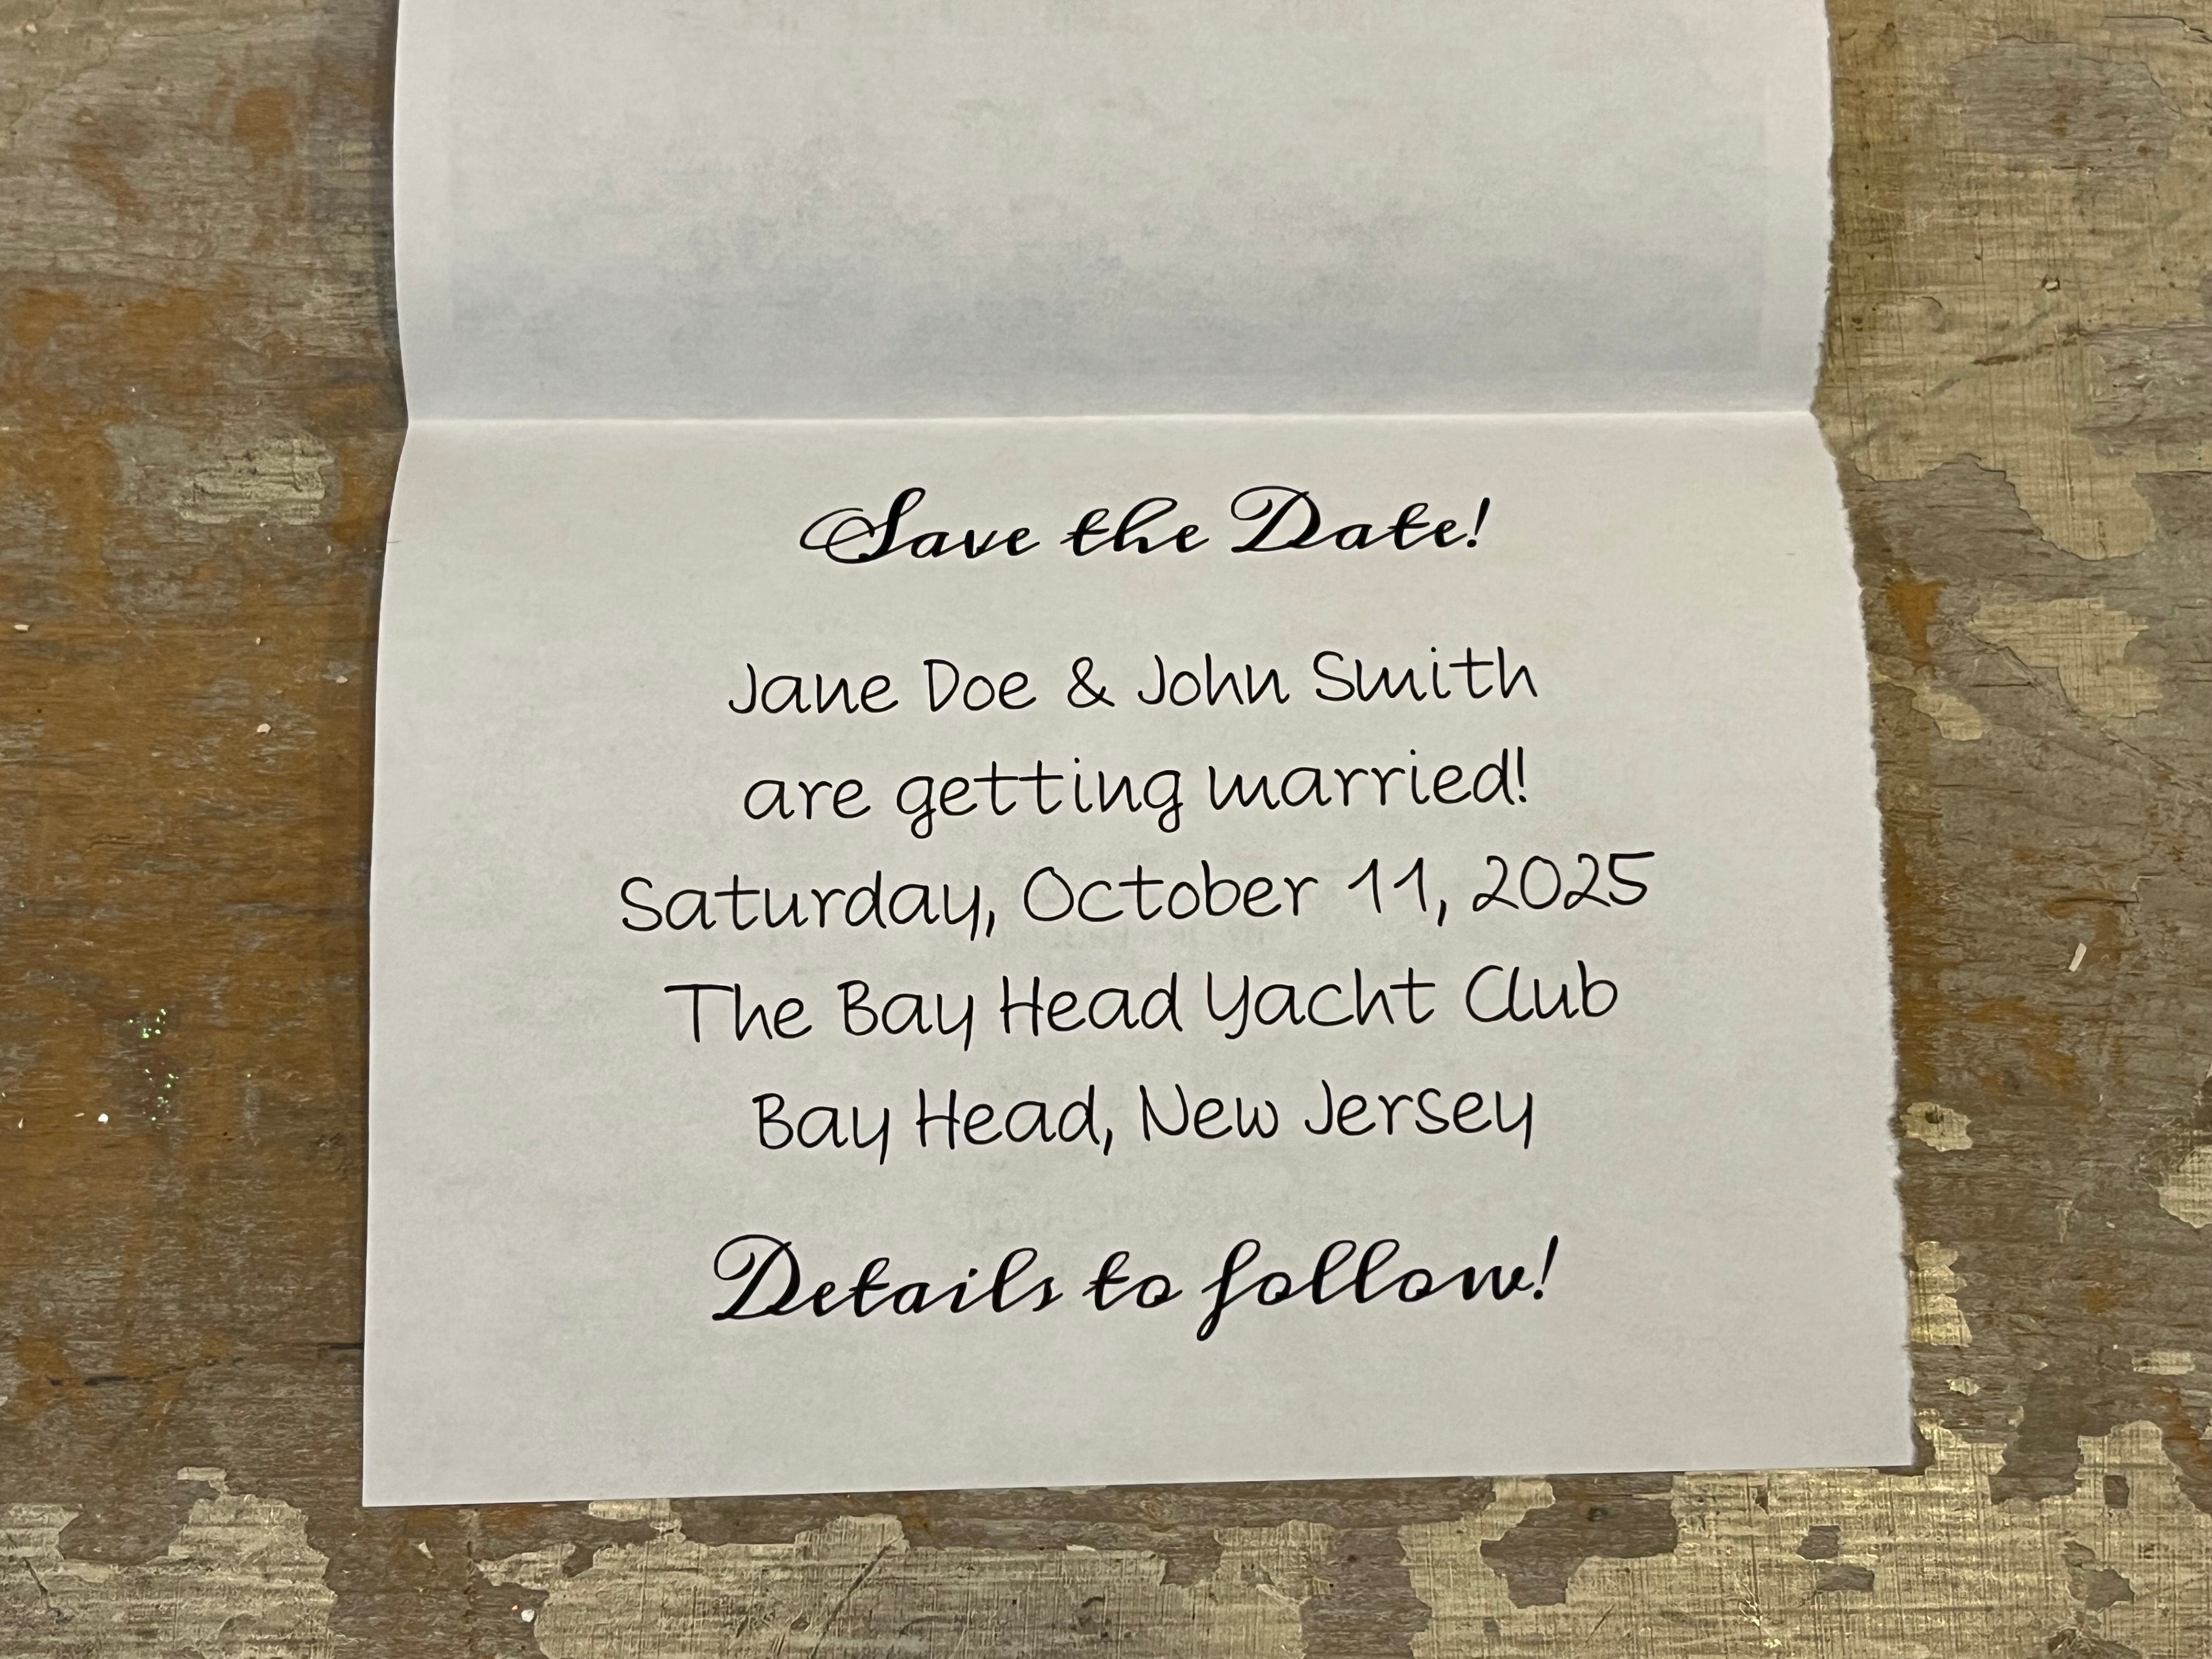 Save the Date!
Jane Doe & John Smith
are getting married!
Saturday, October 11, 2025
The Bay Head Yacht Club
Bay Head, New Jersey
Details to follow!